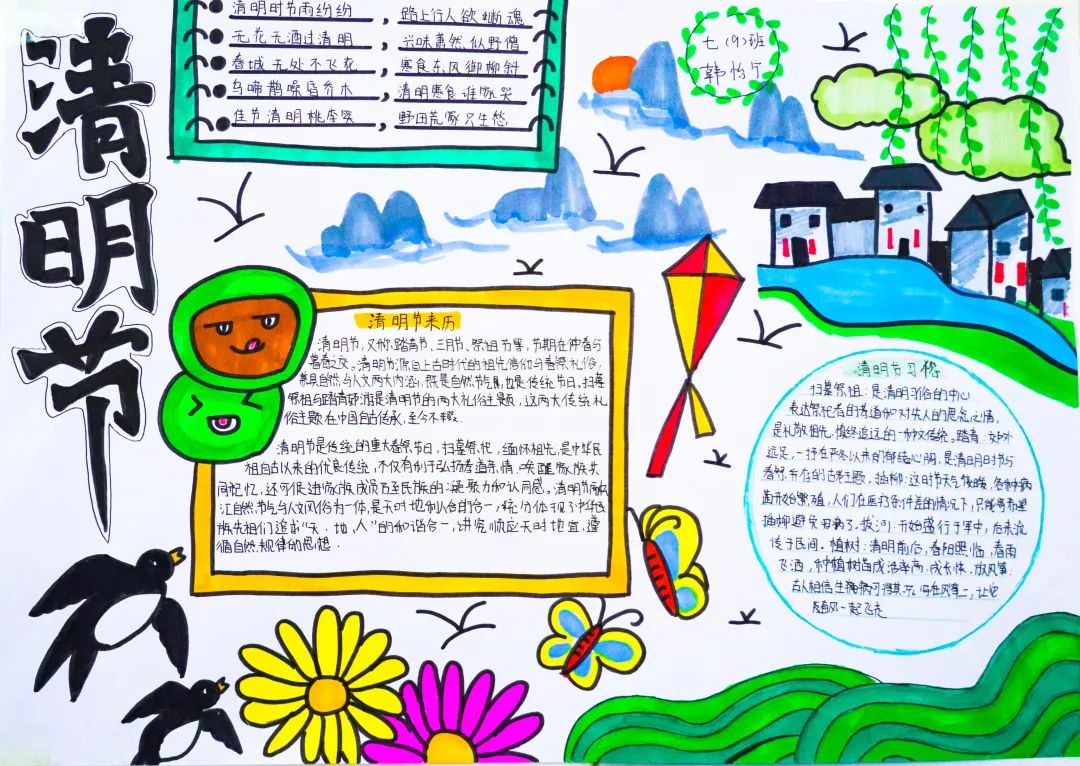 清明节
清明时节雨纷纷，路上行人欲断魂
无花无酒过清明，兴味萧然似野僧
春城无处不飞花，寒食东风御柳斜
乌啼鹊噪昏乔木，清明寒食谁家哭
佳节清明桃李笑，野田荒冢只生愁
七(9)班
韩怡
清明节来历
清明节，又称踏青节、三月节、祭祖节等，节期在仲春与
暮春之交。清明节源自上古时代的祖先信仰与春祭礼俗，
兼具自然与人文两大内涵，既是自然节气，也是传统节日，扫墓
祭祖与踏青郊游是清明节的两大礼俗主题，这两大传统礼
俗主题在中国自古传承，至今不辍.
清明节是传统的重大春祭节日，扫墓祭祀，缅怀祖先，是中华民
族自古以来的优良传统，不仅有利于弘扬孝道亲情、唤醒家族共
同记忆，还可促进家族成员乃至民族的凝聚力和认同感。清明节融
汇自然节气与人文风俗为一体，是天时地利人合的合一，充分体现了中华民
族先祖们追求“天、地、人”的和谐合一，讲究顺应天时地宜、遵
循自然规律的思想.
清明节习俗
扫墓祭祖：是清明习俗的中心
表达祭祀者的孝道和对先人的思念之情，
是礼敬祖先，慎终追远的一种文传统。踏青：
远足，一抒在严冬以来的郁结心胸，是清明时节与
春祭并存的古老主题，插柳：这时节天气很暖，各种病
菌开始繁殖，人们在医疗条件差的情况下，只能寄希望
插柳避免 病了。拔河：开始盛行于军中，后来流
传于民间。植树：清明前后，春阳照临，春雨
飞洒，种植树苗成活率高，成长快，放风筝：
古人相信生 病可将其 写在风筝上，让它
随风一起飞走